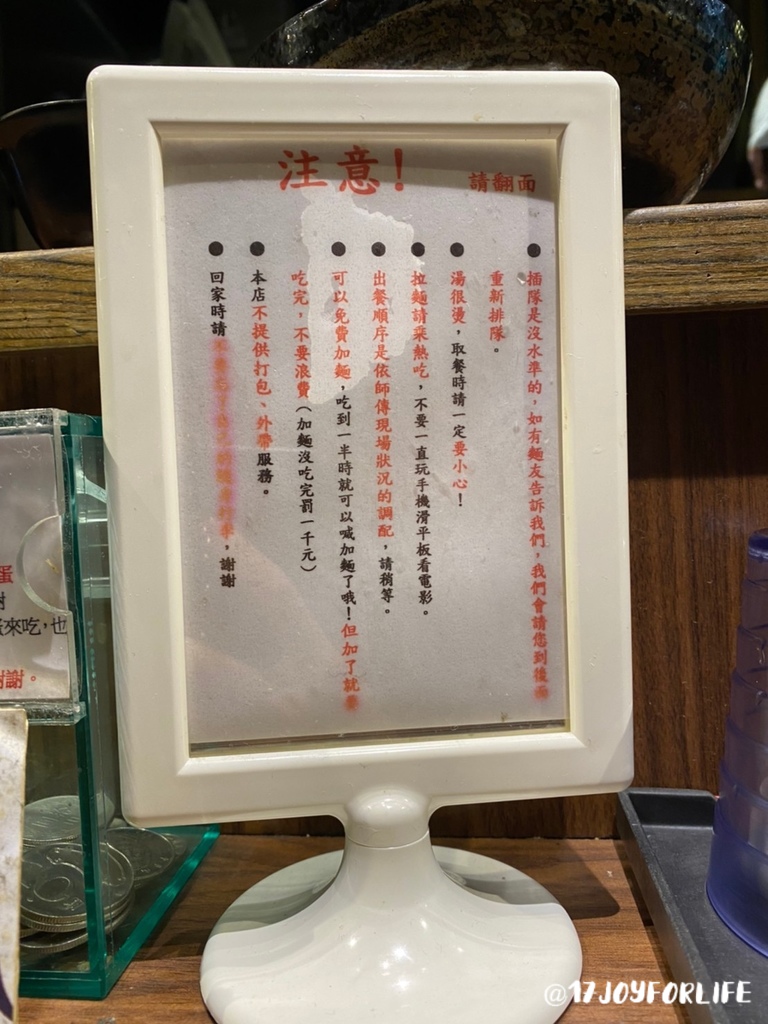 注意!
請翻面
● 插隊是沒水準的，如有麵友告訴我們，我們會請您到後面
重新排隊。
● 湯很燙，取餐時請一定要小心！
● 拉麵請乘熱吃，不要一直玩手機滑平板看電影。
● 出餐順序是依師傅現場狀況的調配，請稍等。
● 可以免費加麵，吃到一半時就可以喊加麵了哦！但加了就要
吃完，不要浪費（加麵沒吃完罰一千元）
● 本店不提供打包、外帶服務。
● 回家時請，謝謝
蛋
來吃，也
謝。
@17JOYFORLIFE